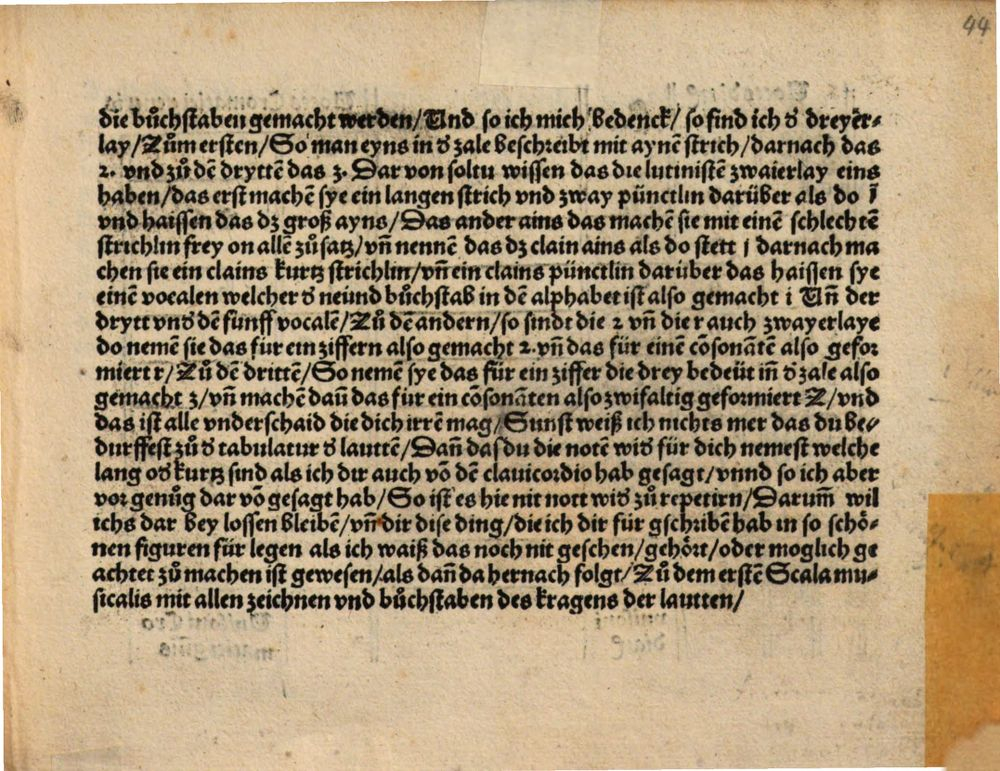 44
die bůchstaben gemacht werden/ Und so ich mich bedenck/ so find ich ď dreyer⸗
lay/ Zům ersten/ So man eyns in ď zale beschreibt mit aynē strich/ darnach das
2. vnd zů dē drytte͂ das 3. Dar von soltu wissen das die lutinisten zwaierlay eins
haben/ das erst machē sye ein langen strich vnd zway pünctlin darüber als do ï
vnd haissen das dz groß ayns/ Das ander ains das machē sie mit einē schlechtē
strichlin frey on allē zů satz/ vn̄ nennē das dz clain ains als do stett ı darnach ma
chen sie ein clains kurtz strichlin/ vn̄ ein clains pünctlin darüber das haissen sye
einē vocalen welcher ď neünd bůchstab in dē alphabet ist also gemacht i Un̄ der
drytt vnď dē funff vocalē/ Zů dē andern/ so sindt die 2 vn̄ die r auch zwayerlaye
do nemē sie das für ein ziffern also gemacht 2. vn̄ das für einē cōsonātē also gefor
miert r/ Zů dē dritte͂/ So nemē sye das für ein ziffer die drey bedeüt in̄ ď zale also
gemacht 3/ vn̄ machē dan̄ das für ein cōsonāten also zwifaltig geformiert Z/ vnd
das ist alle vnderschaid die dich irrē mag/ Sunst weiß ich nichts mer das du be⸗
durffest zů ď tabulatur ď lautē/ Dan̄ das du die notē wiď für dich nemest welche
lang oď kurtz sind als ich dir auch vō dē clauicordio hab gesagt/ vnnd so ich aber
vor genůg dar vō gesagt hab/ So ist es hie nit nott wiď zů repetirn/ Darum̄ wil
ichs dar bey lossen bleibē/ vn̄ dir dise ding/ die ich dir für gschribē hab in so schö⸗
nen figuren für legen als ich waiß das noch nit geschen/ gehört/ oder moglich ge
achtet zů machen ist gewesen/ als dan̄ da hernach folgt/ Zů dem erstē Scala mu⸗
sicalis mit allen zeichnen vnd bůchstaben des kragens der lautten/